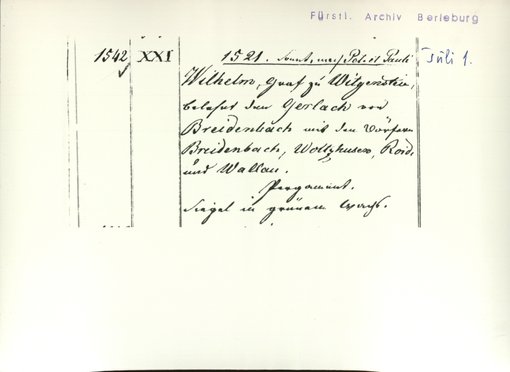 Fürstl. Archiv Berleburg
1542 XXI 1521. Sonnt. nach Petri et Pauli Juli 1.
Wilhelm, Graf zu Witgenstein,
belehnt den Gerlach von
Breidenbach mit den Dörfern
Breidenbach, Woltzhusen,
und Wallau.
Pergament.
Siegel in grünem Wachs.